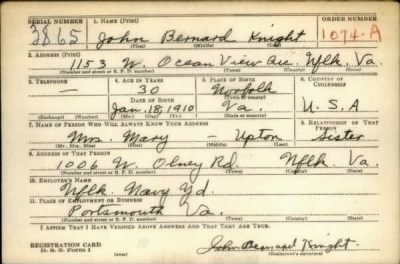 SERIAL NUMBER 1. NAME (Print) ORDER NUMBER
3865 John Bernard Knight 1074-A
(First) (Middle) (Last)
2. ADDRESS (Print)
1153 W. Ocean View Ave. Nflk. Va.
(Number and street or R. F. D. number) (Town) (County) (State)
3. TELEPHONE 4. AGE IN YEARS 5. PLACE OF BIRTH 6. COUNTRY OF CITIZENSHIP
— 30 Norfolk
DATE OF BIRTH (Town or county)
Jan. 18, 1910 Va. U. S. A
(Exchange) (No.) (Mo.) (Day) (Yr.) (State or country)
7. NAME OF PERSON WHO WILL ALWAYS KNOW YOUR ADDRESS 8. RELATIONSHIP OF THAT PERSON
Mrs. Mary — Upton Sister
(Mr., Mrs., Miss) (First) (Middle) (Last)
9. ADDRESS OF THAT PERSON
1006 W. Olney Rd. Nflk Va.
(Number and street or R. F. D. number) (Town) (County) (State)
10. EMPLOYER'S NAME
Nflk. Navy Yd.
11. PLACE OF EMPLOYMENT OR BUSINESS
Portsmouth Va.
(Number and street or R. F. D. number) (Town) (County) (State)
I AFFIRM THAT I HAVE VERIFIED ABOVE ANSWERS AND THAT THEY ARE TRUE.
REGISTRATION CARD John Bernard Knight
D. S. S. Form 1 (Registrant's signature)